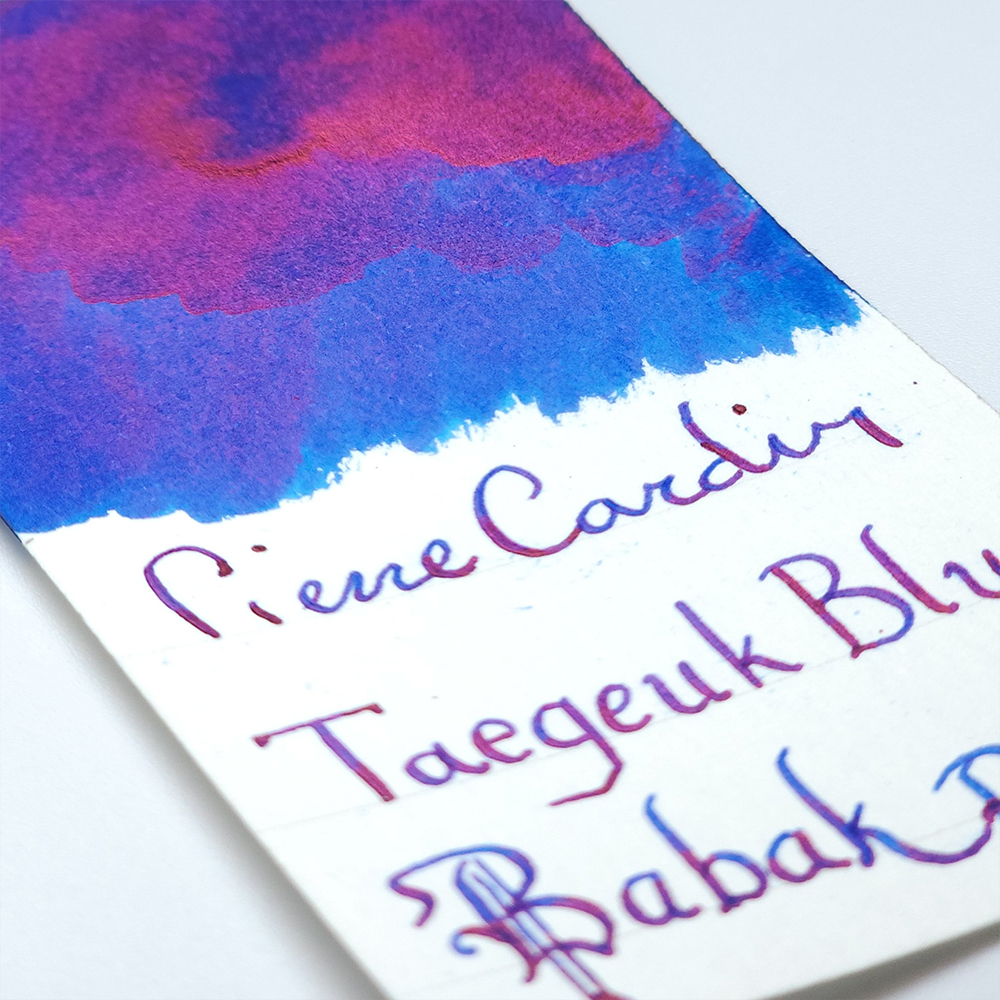 Pierre Cardin
Taegeuk Blu
Babak